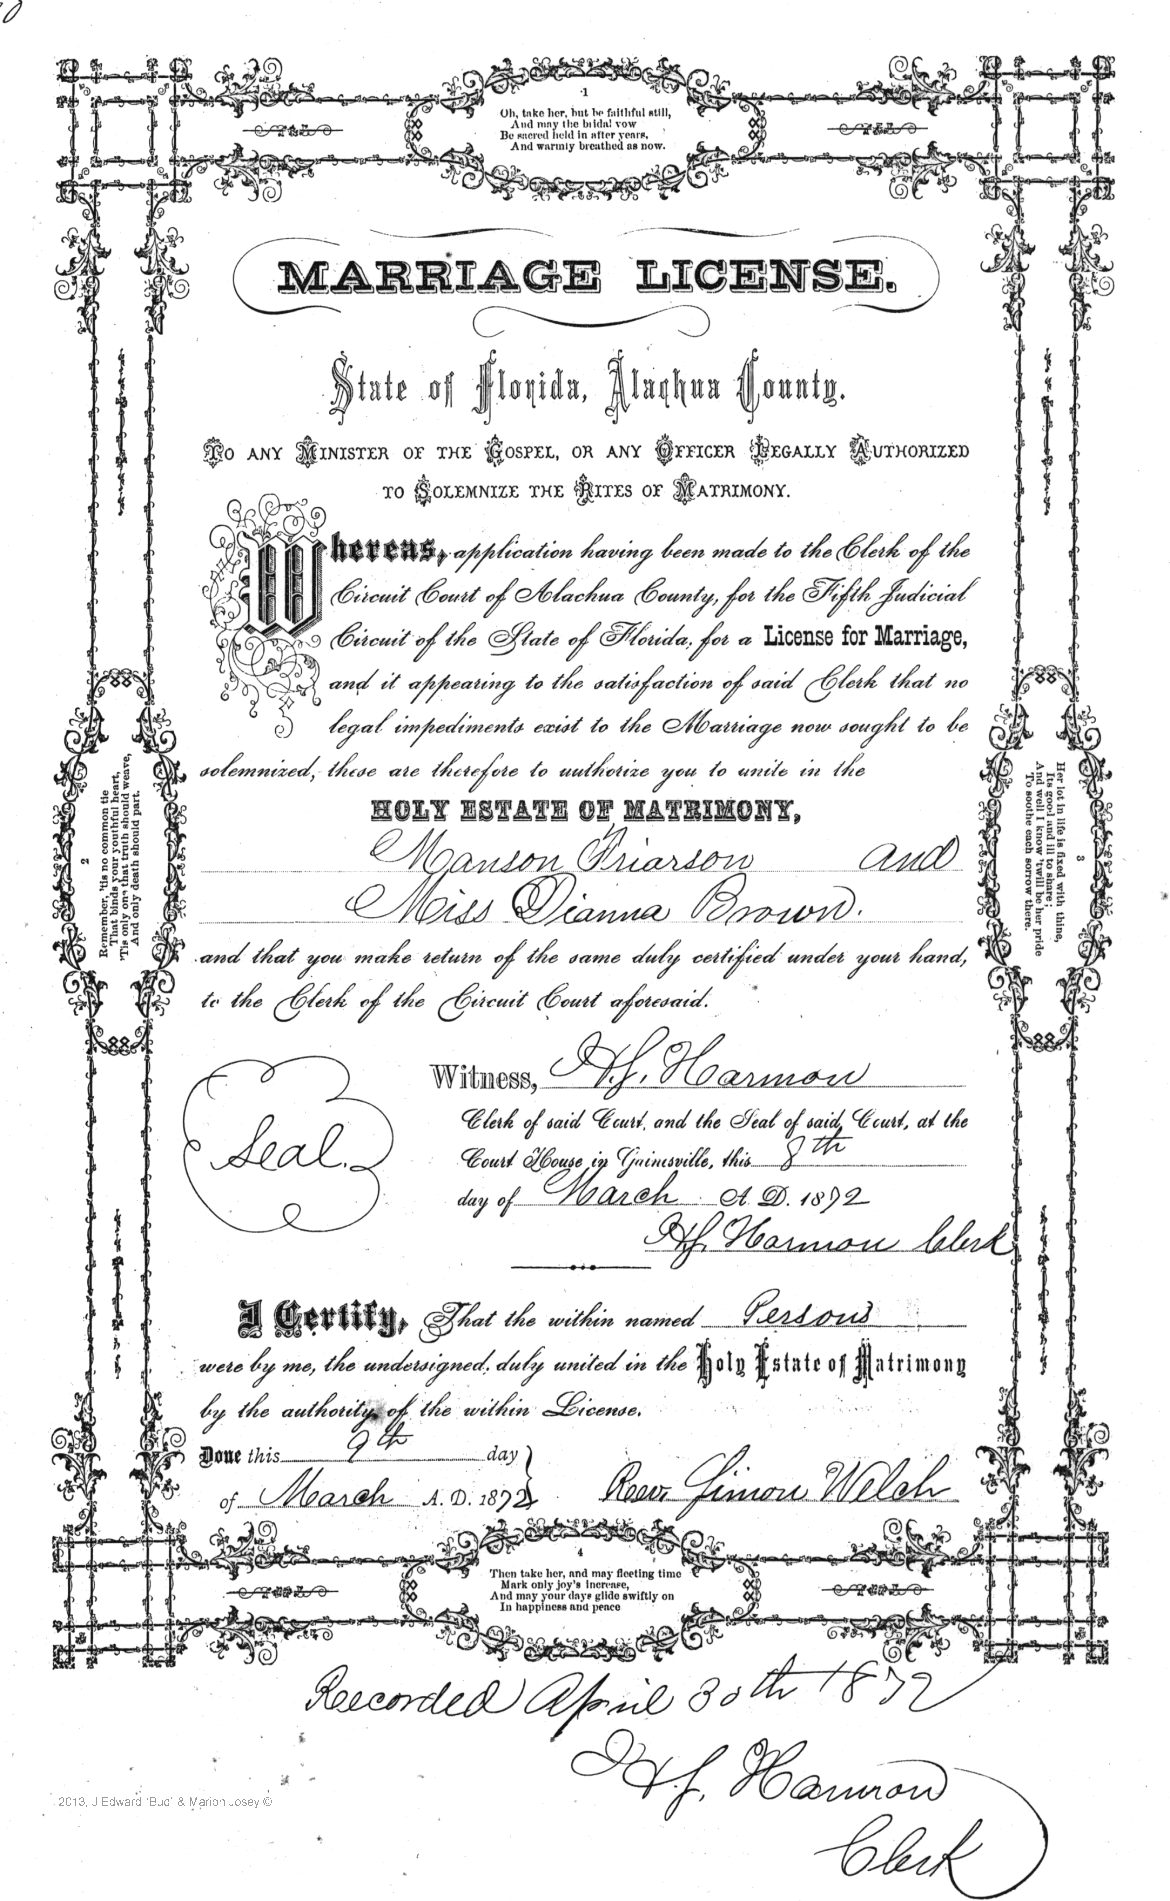 1
Oh, take her, but be faithful still,
And may the bridal vow
Be sacred held in after years,
And warmly breathed as now.
MARRIAGE LICENSE.
State of Florida, Alachua County.
TO ANY MINISTER OF THE GOSPEL, OR ANY OFFICER LEGALLY AUTHORIZED
TO SOLEMNIZE THE RITES OF MATRIMONY.
Whereas, application having been made to the Clerk of the
Circuit Court of Alachua County, for the Fifth Judicial
Circuit of the State of Florida, for a License for Marriage,
and it appearing to the satisfaction of said Clerk that no
legal impediments exist to the Marriage now sought to be
solemnized, these are therefore to authorize you to unite in the
HOLY ESTATE OF MATRIMONY,
Manson Friarson and
Miss Dianna Brown.
and that you make return of the same duly certified under your hand,
to the Clerk of the Circuit Court aforesaid.
2
Remember, 'tis no common tie
That binds your youthful heart,
'Tis only one that truth should weave,
And only death should part.
3
Her lot in life is fixed with thine,
Its good and ill to share;
And well I know 'twill be her pride
To soothe each sorrow there.
Witness, H.J. Harmon
Clerk of said Court, and the Seal of said Court, at the
Court House in Gainesville, this 8th
day of March A. D. 1872
Seal.
H.J. Harmon Clerk
I Certify, That the within named Persons
were by me, the undersigned, duly united in the Holy Estate of Matrimony
by the authority of the within License.
Done this 9th day
of March A. D. 1872
Rev. Simon Welch
4
Then take her, and may fleeting time
Mark only joy's increase,
And may your days glide swiftly on
In happiness and peace
Recorded April 30th 1872
H.J. Harmon
Clerk
2013, J Edward 'Bud' & Marion Josey ©